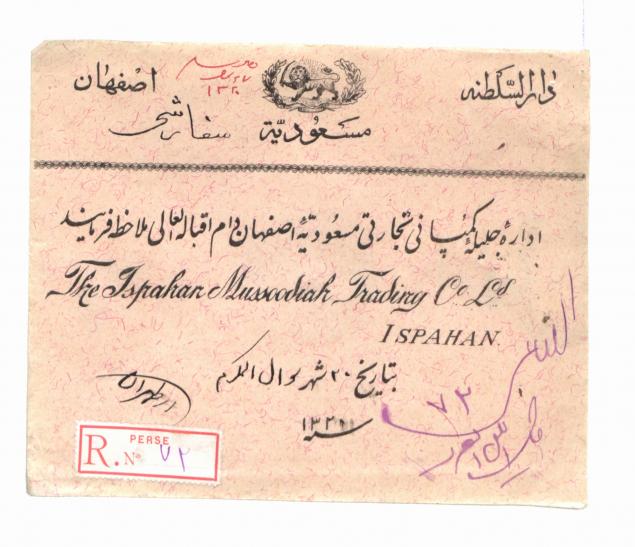 دارالسلطنه
اصفهان
مسعودیّه
سفارشی
اداره جلیله کمپانی تجارتی مسعودیّهٔ اصفهان دام اقباله العالی ملاحظه فرمایند
The Ispahan Mussoodiah Trading Co Ld
ISPAHAN.
بتاریخ ۲۰ شهر شوال المکرم
سنه
از طهران
۷۲
PERSE
R. No ۷۲